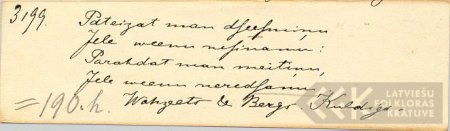 3199.
Pateizat man dseesmiņu,
Jele weenu nesinamu:
Parahdat man meitiņu,
Jele weenu neredsamu.
=190.h. Wahzeets & Bergs Kuldīgā
LATVIEŠU
FOLKLORAS
KRĀTUVE